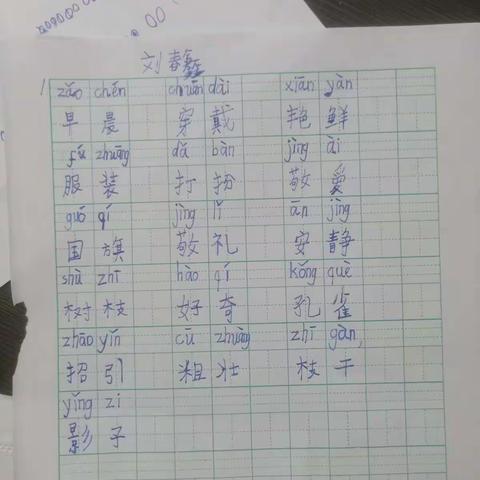 刘春鑫
1 zǎo chén chuān dài xiān yàn
早 晨 穿 戴 艳 鲜
fú zhuāng dǎ bàn jìng ài
服 装 打 扮 敬 爱
guó qí jìng lǐ ān jìng
国 旗 敬 礼 安 静
shù zhī hào qí kǒng què
树 枝 好 奇 孔 雀
zhāo yǐn cū zhuàng zhī gàn
招 引 粗 壮 枝 干
yǐng zi
影 子